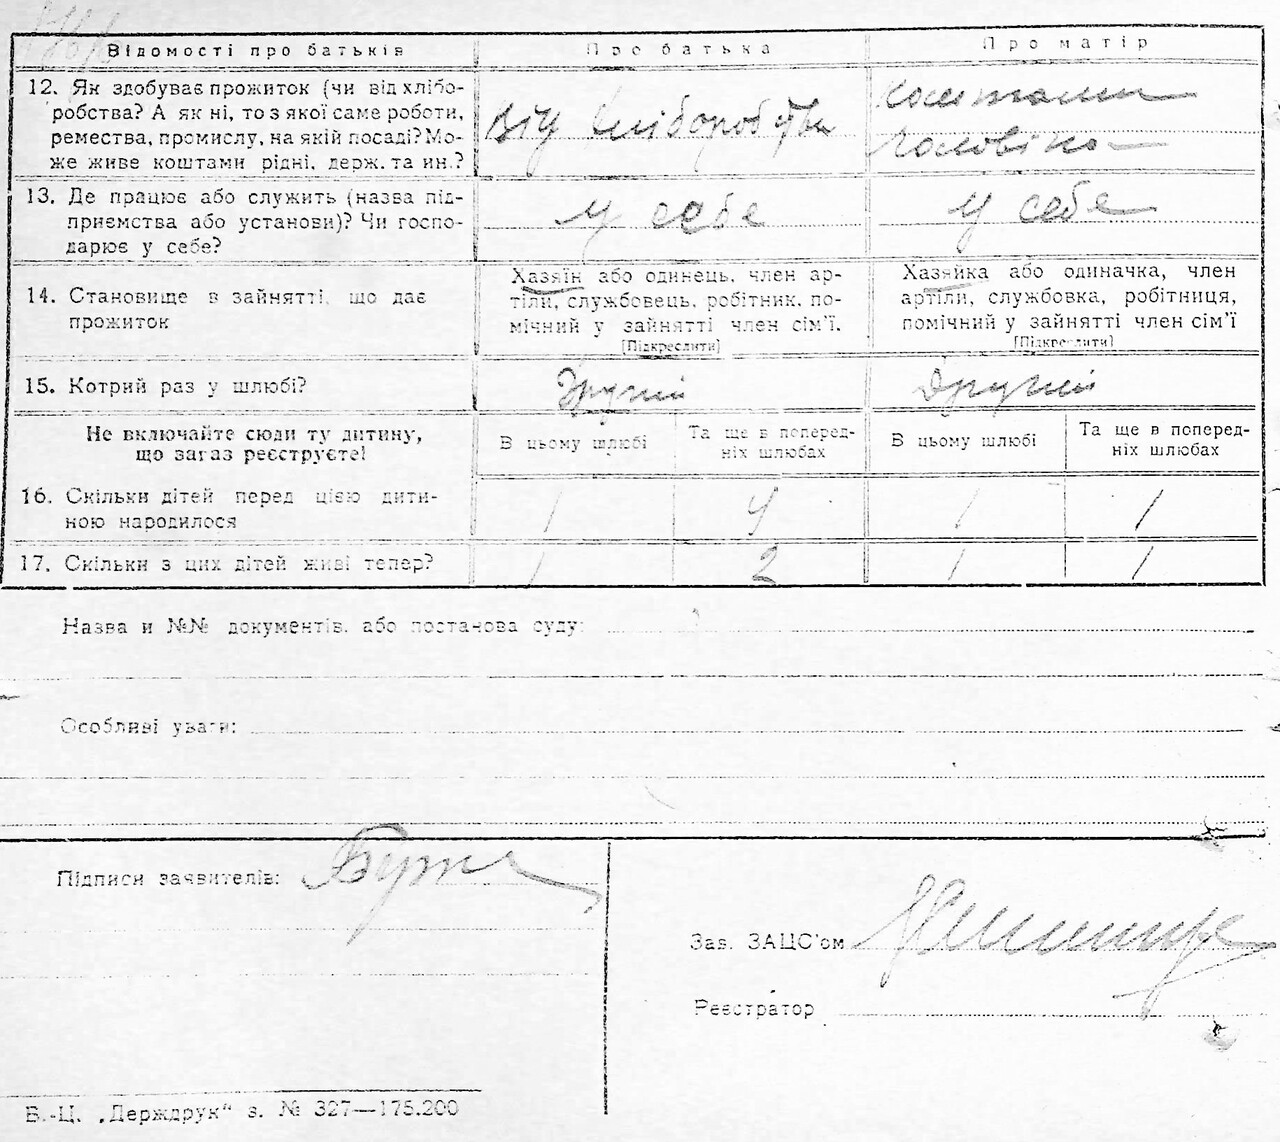 Відомості про батьків
Про батька
Про матір
12. Як здобуває прожиток (чи від хлібо-
робства? А як ні, то з якої саме роботи,
ремества, промислу, на якій посаді? Мо-
же живе коштами рідні, держ. та ин.?
Від хліборобства
Коштами
Чоловіка
13. Де працює або служить (назва під-
приємства або установи)? Чи госпо-
дарює у себе?
у себе
у себе
14. Становище в зайнятті, що дає
прожиток
Хазяїн або одинець, член ар-
тіли, службовець, робітник, по-
мічний у зайнятті член сім'ї.
[Підкреслити]
Хазяйка або одиначка, член
артіли, службовка, робітниця,
помічний у зайнятті член сім'ї
[Підкреслити]
15. Котрий раз у шлюбі?
Другий
Другий
Не включайте сюди ту дитину,
що зараз реєструєте!
В цьому шлюбі
Та ще в поперед-
ніх шлюбах
В цьому шлюбі
Та ще в поперед-
ніх шлюбах
16. Скільки дітей перед цією дити-
ною народилося
1
4
1
1
17. Скільки з цих дітей живі тепер?
1
2
1
1
Назва и №№ документів, або постанова суду:
Особливі уваги:
Підписи заявителів:
Зав. ЗАЦС'ом
Реєстратор
В.-Ц. „Держдрук“ з. № 327—175.200